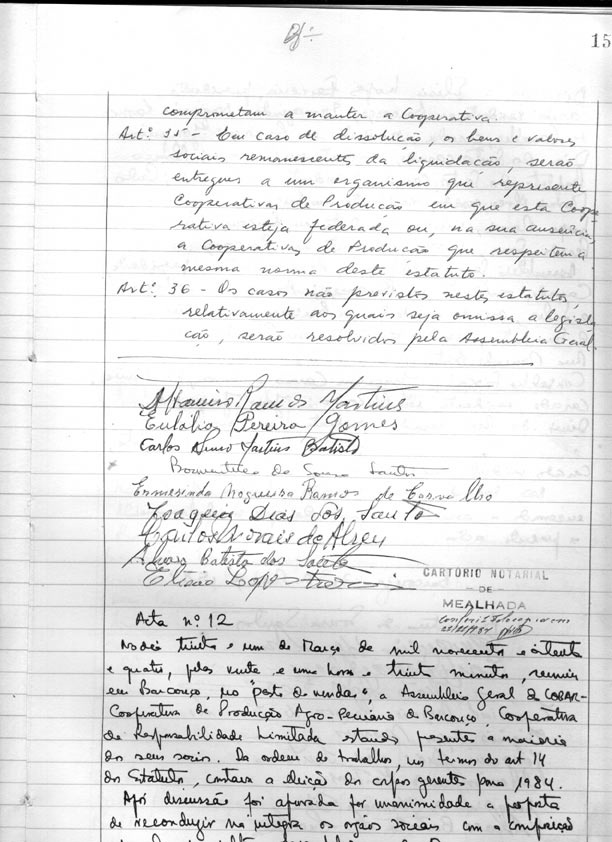 15
comprometam a manter a Cooperativa.
Artº 35 - Em caso de dissolução, os bens e valores
sociais remanescentes da liquidação, serão
entregues a um organismo que represente
Cooperativas de Produção em que esta Coope-
rativa esteja federada ou, na sua ausência,
a Cooperativas de Produção que respeitem a
mesma norma deste estatuto.
Artº 36 - Os casos não previstos nestes estatutos,
relativamente aos quais seja omissa a legisla-
ção, serão resolvidos pela Assembleia Geral.
Ramos Martins
Eulália Pereira Gomes
Carlos Martins Batista
de Sousa Santos
Ermesinda Nogueira Ramos de Carvalho
Joaquim Dias dos Santos
Carlos Morais de Abreu
Alvaro Batista dos Santos
Elisio Lopes
CARTÓRIO NOTARIAL
DE
MEALHADA
Acta nº 12
Aos dias trinta e um de Março de mil novecentos e oitenta
e quatro, pelas vinte e uma horas e trinta minutos, reuniu
em Barcouço, no "posto de vendas", a Assembleia Geral da COBAR-
Cooperativa de Produção Agro-Pecuária de Barcouço, Cooperativa
de Responsabilidade Limitada estando presentes a maioria
dos seus socios. Da ordem de trabalhos, nos termos do art 14
dos Estatutos, constava a eleição dos corpos gerentes para 1984.
Após discussão foi aprovada por unanimidade a proposta
de reconduzir na integra os orgãos sociais com a composição